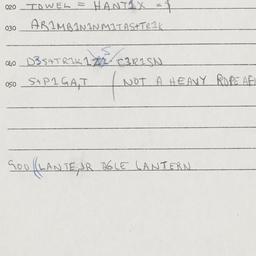 020 TOWEL = HANT1X =
030 AR1MB1N1NM1TAS+TR1K
040 D3S+TR1K1 C3R1SN
050 S+P1GA,T / NOT A HEAVY ROPE
LANTE,R LANTERN